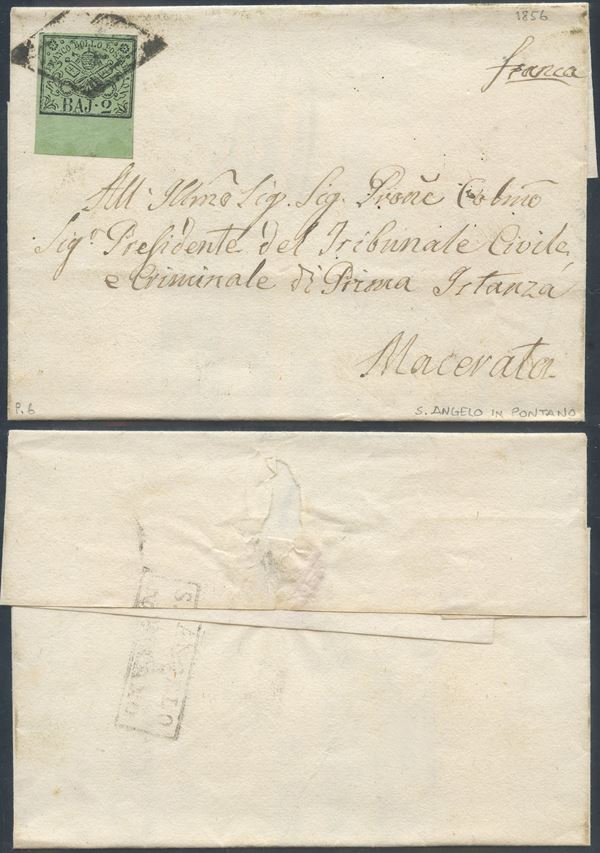 1856
franca
FRANCO BOLLO POSTALE
BAJ. 2
All' Illmo Sig. Sig. Prone Colmo
Sigr. Presidente del Tribunale Civile,
e Criminale di Prima Istanza
Macerata
P. 6
S. ANGELO IN PONTANO
S. ANGELO